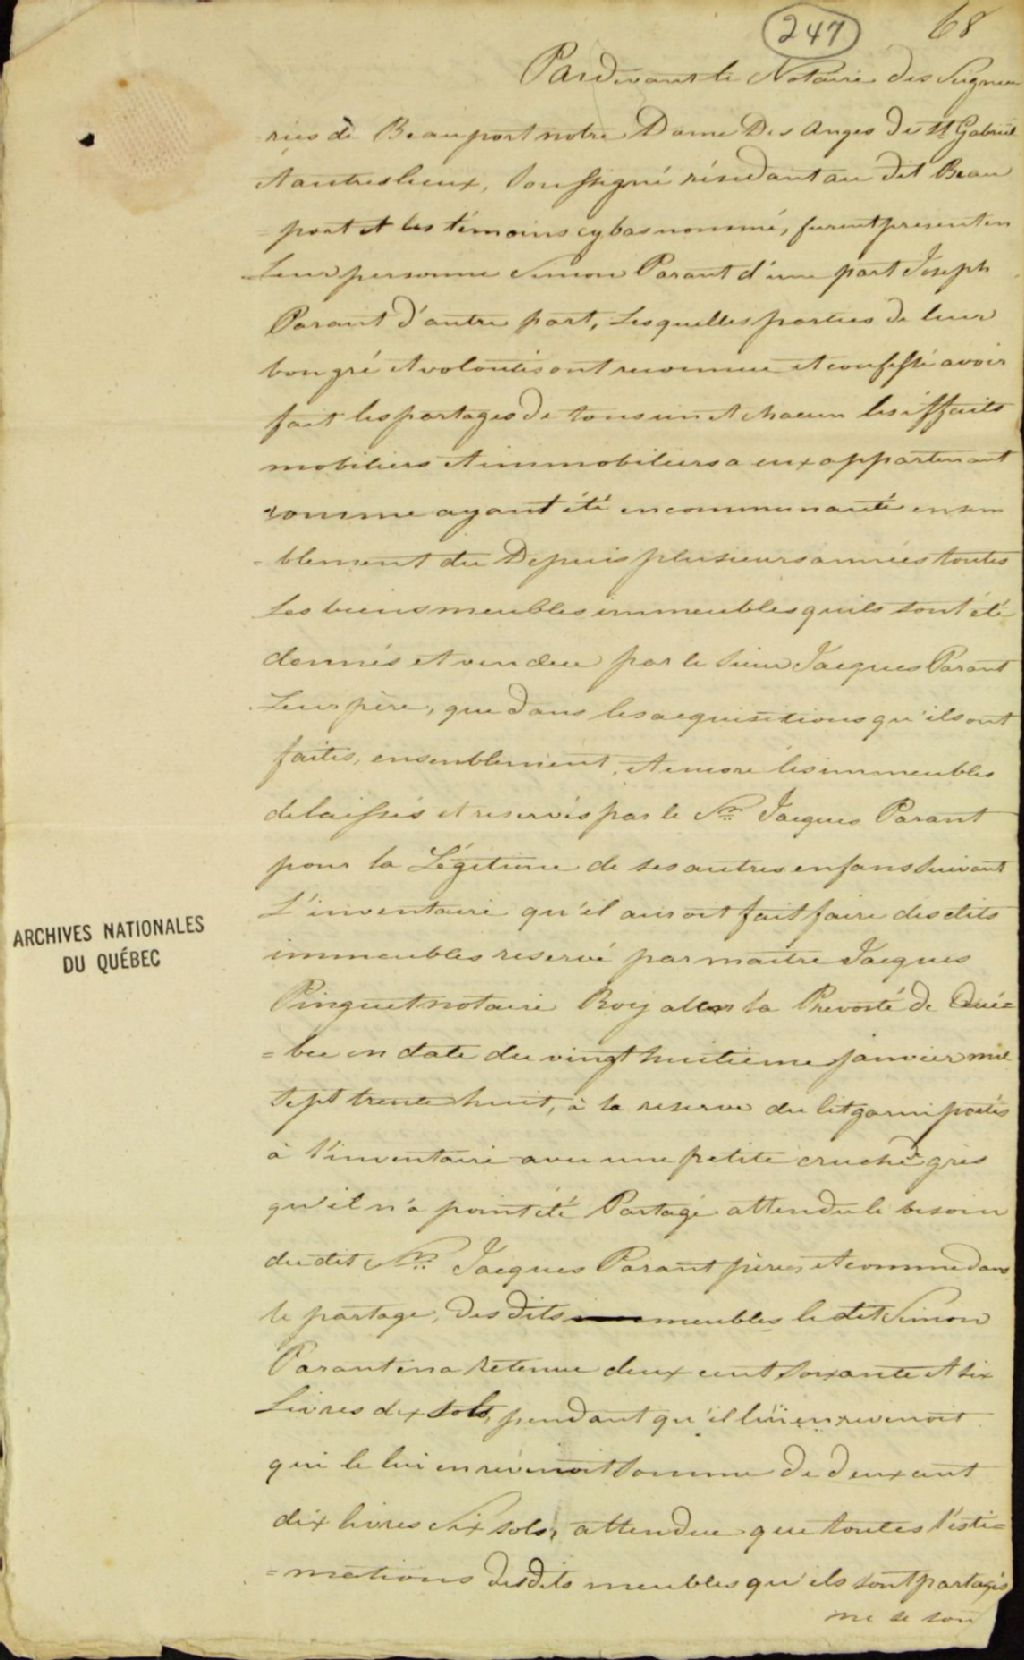 247 68
Pardevant le Notaire des Seigneu
ries de Beauport notre Dame Des Anges de St Gabriel
et autres lieux, Soussigné résidant au dit Beau
= port et les témoins cy bas nommé, furent present en
leur personne Simon Parant d'une part Joseph
Parant d'autre part, Lesquelles parties de leur
bon gré et volontés ont reconnue et confessé avoir
fait les partages de tous un et chacun les éffaits
mobiliers et immobiliers a eux appartenant
comme ayant été en communauté ensem
= blement du Depuis plusieurs années toutes
Les biens meubles immeubles quils sont été
donnés et vendue par le Sieur Jacques Parant
Leur père, que dans les acquisitions qu'ils ont
faites, ensemblement, et encore les immeubles
delaissés et reservés par le Sr. Jacques Parant
pour la Légitime de ses autres enfans Suivant
L'inventaire qu'il auroit fait faire des dits
immeubles reservé par maitre Jacques
Pinguet notaire Royal en la Prevosté de Qué=
= bec en date du vingt huitieme janvier mil
Sept trente huit, à la reserve du lit garni portés
à l'inventaire avec une petite cruche de grés
qu'il n'a point été Partagé attendu le besoin
du dit Sr. Jacques Parant père, et comme dans
le partage, des dits meubles le dit Simon
Parant en a retenue deux cent soixante et six
Livres dix sols, pendant qu'il lui en revenoit
qui le lui en révenoit Somme de deux cent
dix livres Six sols, attendue que toutes l'esti=
= mations des dits meubles qu'ils sont partagés
ne se son
ARCHIVES NATIONALES
DU QUÉBEC